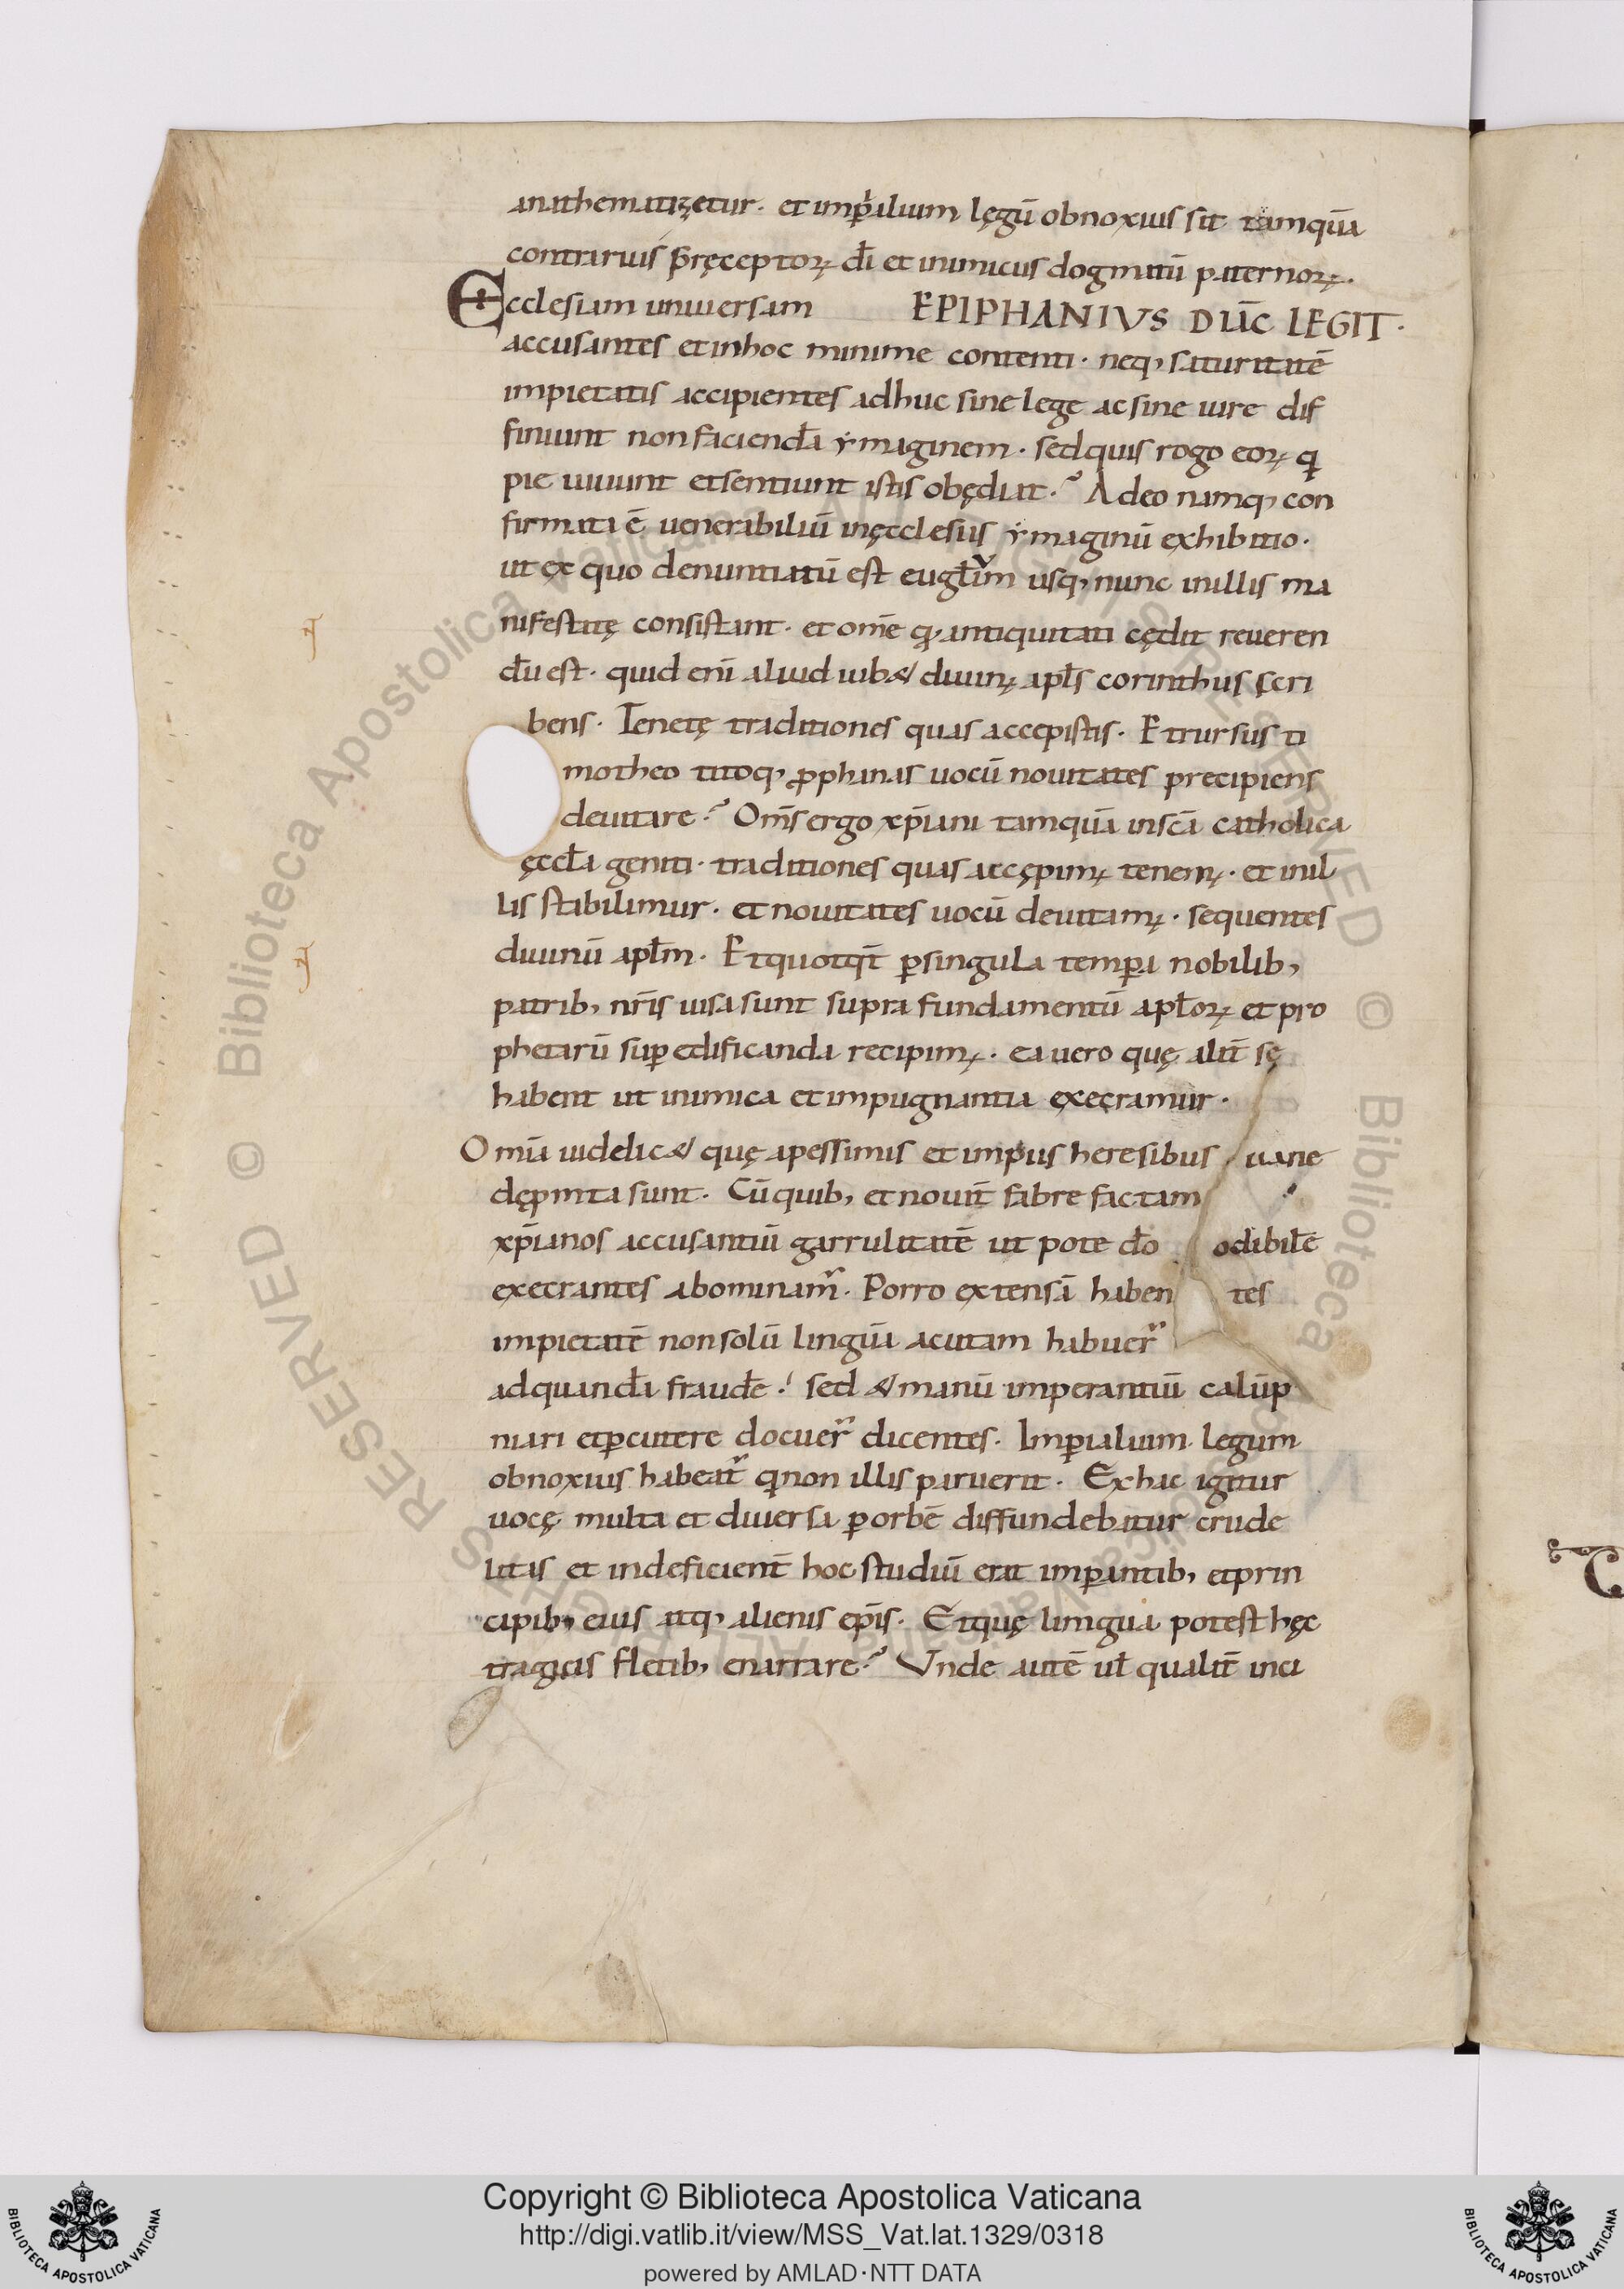 anathematizetur. et imp̄ialium lęgū obnoxius sit tamquā
contrarius p̄ręceptoꝝ dī et inimicus dogmatū paternoꝝ.
Ecclesiam uniuersam EPIPHANIVS DIĀC LEGIT.
accusantes et inhoc minime contenti. neq, saturitatē
impietatis accipientes adhuc sine lege ac sine iure dif
finiunt non faciendā ymaginem. sed quis rogo eoꝝ q
pie uiuunt etsentiunt istis obędiat.? Adeo namq, con
firmata ē uenerabiliū inęcclesiis ymaginū exhibitio.
ut ex quo denuntiatū est eugłium usq, nunc inillis ma
nifestatę consistant. et om̄e q, antiquitati cędit reueren
dū est. quid enī aliud iub& diuinꝰ apłs corinthus scri
bens. Tenetę traditiones quas accepistis. Et rursus ti
motheo titoq, ꝓphanas uocū nouitates precipiens
deuitare.? Om̄s ergo xp̄iani tamquā inscā catholica
ęccła geniti. traditiones quas accępimꝰ tenemꝰ. et inil
lis stabilimur. et nouitates uocū deuitamꝰ. sequentes
diuinū apłm. Et quotq̄t ꝑsingula temꝑa nobilib,
patrib, nr̄is uisa sunt supra fundamentū apłoꝝ et pro
phetarū suꝑ edificanda recipimꝰ. ea uero quę alit̄ sę
habent ut inimica et impugnantia exęcramur.
Omīa uidelic& quę apessimis et impiis heresibus uane
dępinta sunt. Cū quib, et nouit̄ fabre factam
xp̄ianos accusantiū garrulitatē ut pote dō odibilē
execrantes abominam̄. Porro extensā haben tes
impietatē nonsolū linguā acutam habuer̄
adquandā fraudē.! sed & manū imperantiū calūp
niari etꝑcutere docuer̄ dicentes. Imꝑialium legum
obnoxius habeat̄ q non illis paruerit. Ex hac igitur
uocę multa et diuersa ꝑ orbē diffundebatur crude
litas et indeficient̄ hoc studiū erat imꝑantib, etprin
cipib, eius atq, alienis ep̄is. Et quę limgua potest hęc
tragicis fletib, enarrare.? Vnde autē uł qualit̄ inci
Copyright © Biblioteca Apostolica Vaticana
http://digi.vatlib.it/view/MSS_Vat.lat.1329/0318
powered by AMLAD·NTT DATA